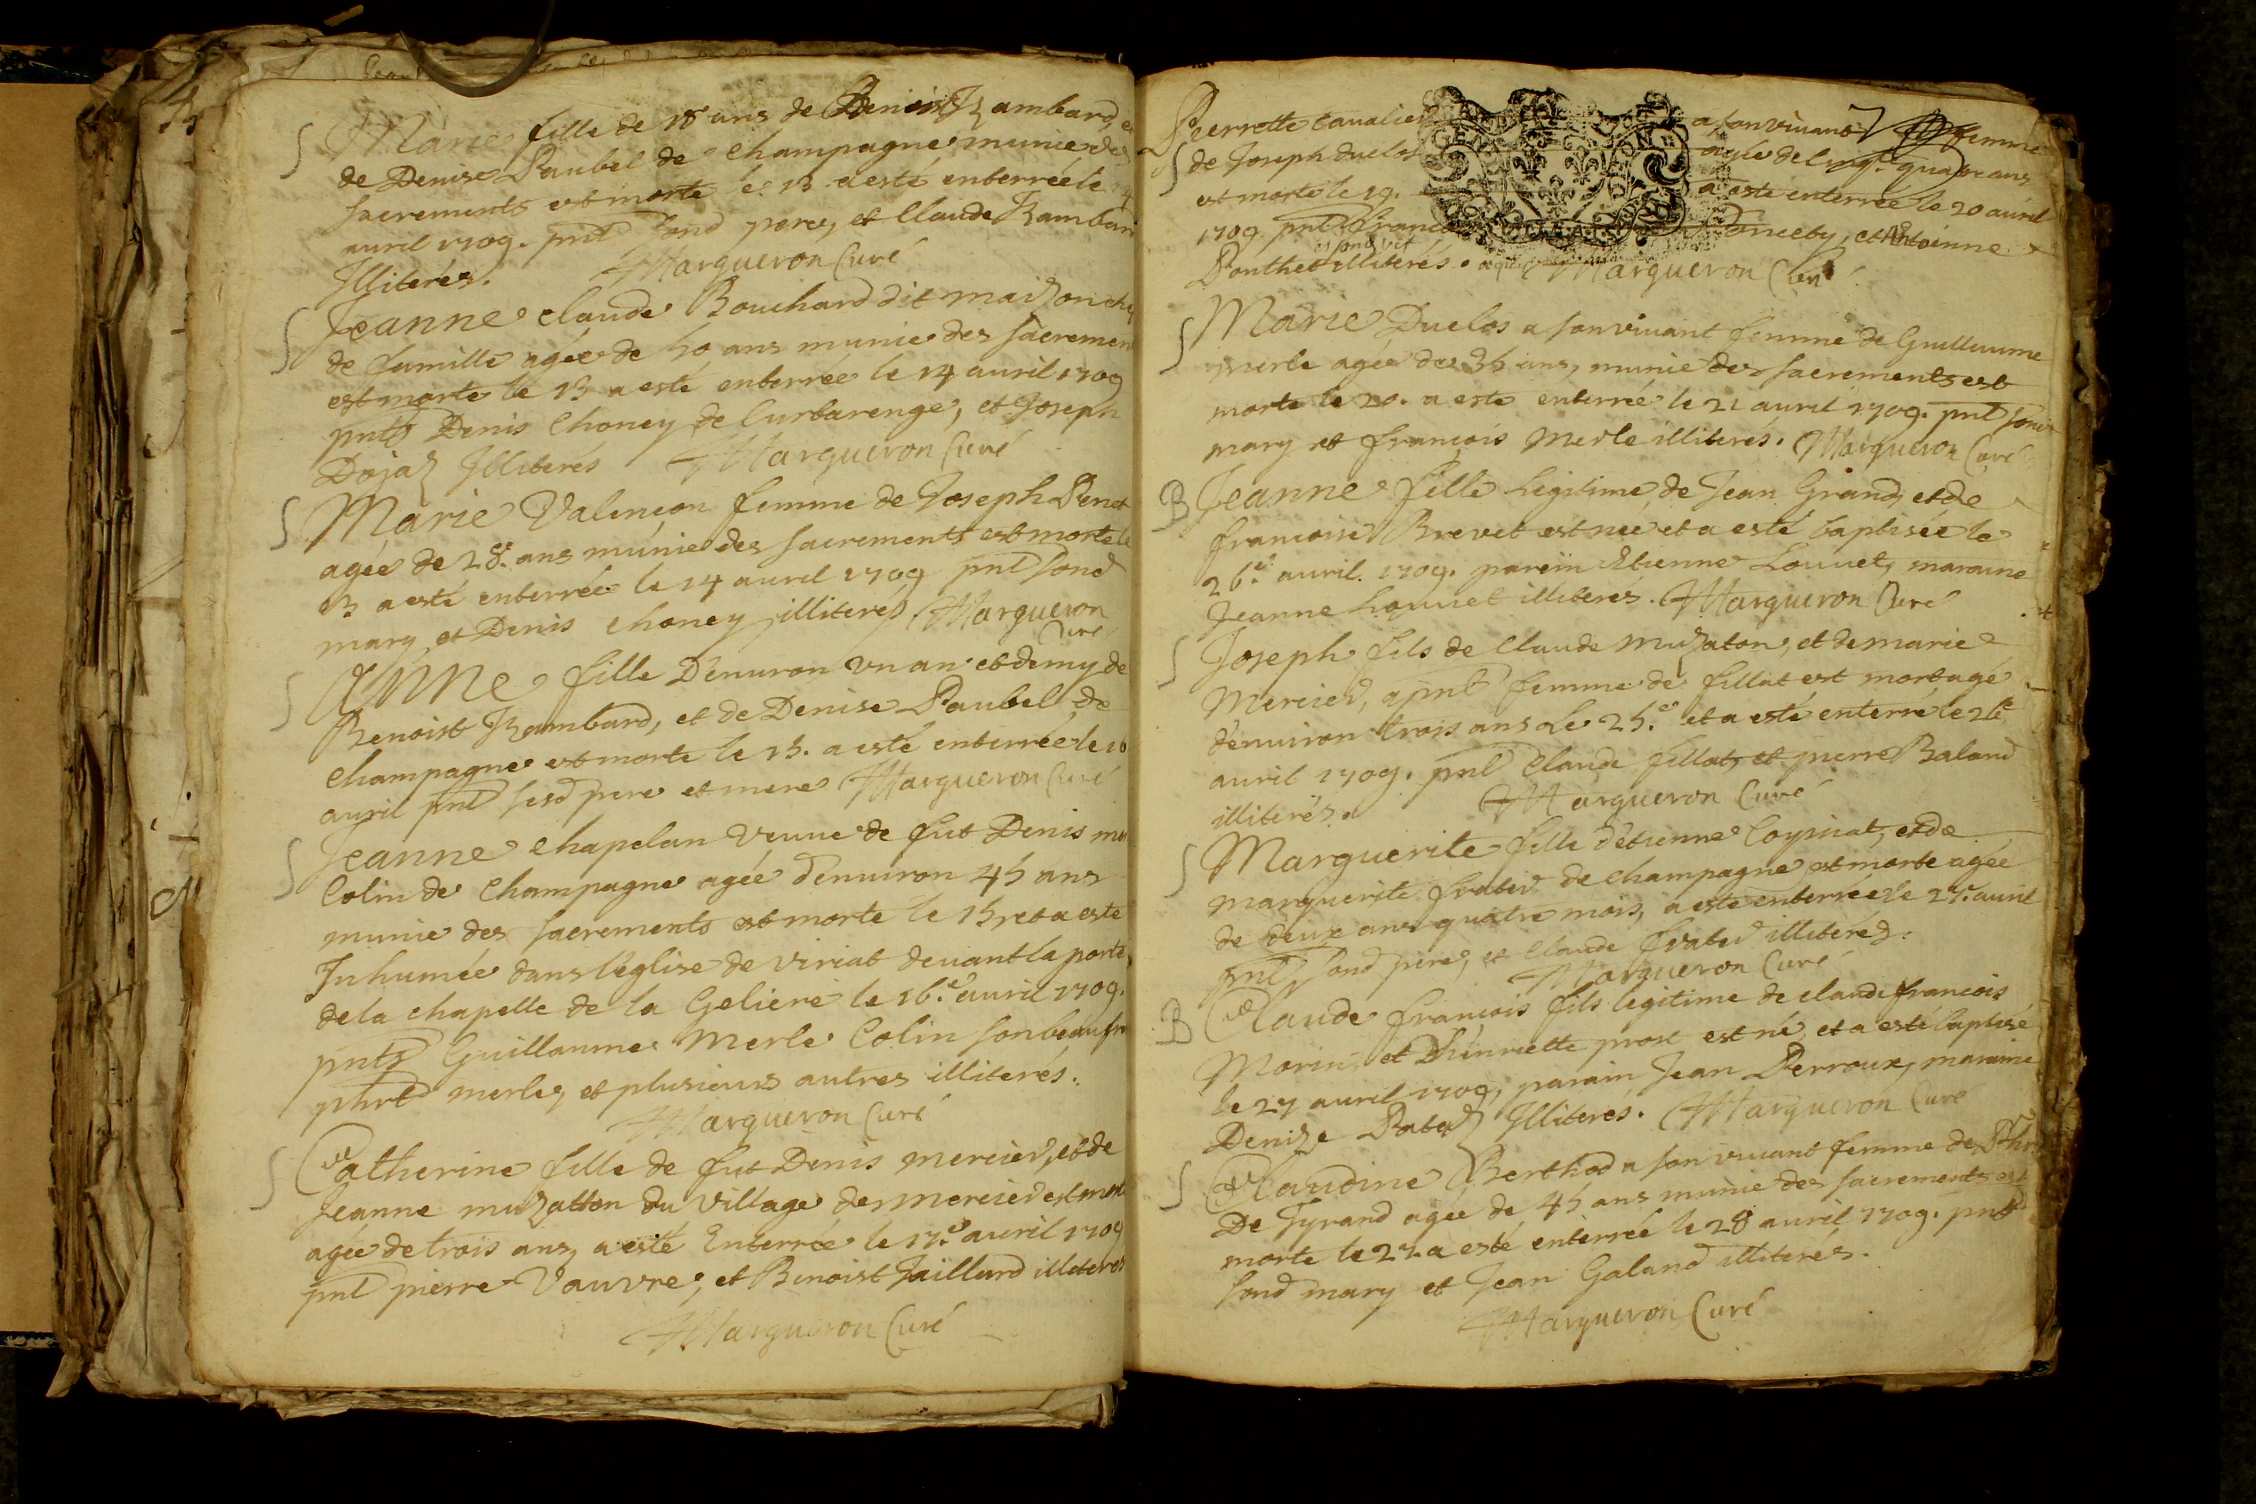 S Marie fille de 18 ans de Benoist Rambard, et
de Denise Paubel de Champagne munie des
sacrements est morte le 13 a esté enterrée le 14
avril 1709. pnt sond pere, et Claude Rambard
Illiterés. Margueron Curé
S Jeanne Claude Bouchard dit maizon chef
de famille agée de 50 ans munie des sacrements
est morte le 13 a esté enterrée le 14 avril 1709
pnts Denis Choney de Curbarenge, et Joseph
Dojaz Illiterés Margueron Curé
S Marie Valençon femme de Joseph Penet
agée de 28. ans munie des sacrements est morte le
13 a esté enterrée le 14 avril 1709 pnt sond
mary et Denis Choney illiterés Margueron
Curé
S Anne fille D'environ vn an et demy de
Benoist Rambard, et de Denise Paubel de
Champagne est morte le 15. a esté enterrée le 16
avril pnt sesd pere et mere Margueron Curé
S Jeanne Chapelan veuve de fut Denis
Colin de Champagne agée d'environ 45 ans
munie des sacrements est morte le 15 et a esté
Inhumée dans l'église de viriat devant la porte
de la chapelle de la Geliere le 16.e avril 1709.
pnts Guillaume Merle Colin son beaufr
phrt merle, et plusieurs autres illiterés.
Margueron Curé
S Catherine fille de fut Denis mercier, et de
Jeanne muzatton du village des merciers est morte
agée de trois ans, a esté Enterrée le 17.e avril 1709
pnt pierre Vauvre, et Benoist Jaillard illiterés
Margueron Curé
Pierrette Cavalier a son vivant femme
S de Joseph duclos agée de quatre ans
est morte le 19. a esté enterrée le 20 avril
1709 pnt Poncety, et Antoinne
Ponthet illiterés. Margueron Curé
S Marie Duclos a son vivant femme de Guillaume
merle agée de 35 ans, munie des sacrements est
morte le 20. a esté enterré le 21 avril 1709. pnt sond
mary et françois Merle illiterés. Margueron Curé
B Jeanne fille légitime de Jean Grand, et de
françoise Brevet est née et a esté baptisée le
26.e avril. 1709. parein Etienne Louvet, maraine
Jeanne Louvet illiterés. Margueron Curé
S Joseph fils de Claude muzaton, et de marie
Mercier, apnt femme de fillat est mort agé
d'environ trois ans le 25.e et a esté enterré le 26.e
avril 1709. pnt Claude fillat, et pierre Baland
illiterés. Margueron Curé
S Marguerite fille d'etienne Coynat, et de
marguerite frater de champagne est morte agée
de deux ans quatre mois, a esté enterrée le 27. avril
pnts sond pere, et Claude frater illiterés.
Margueron Curé
B Claude françois fils legitime de claude françois
Morin, et D'henriette prost est né, et a esté baptisé
le 27 avril 1709, parain Jean Perroux, maraine
Denize Patez Illiterés. Margueron Curé
S Claudine Berthod a son vivant femme de
De Tyrand agée de 45 ans munie des sacrements est
morte le 27. a esté enterrée le 28 avril 1709. pnt
sond mary et Jean Galand illiterés.
Margueron Curé